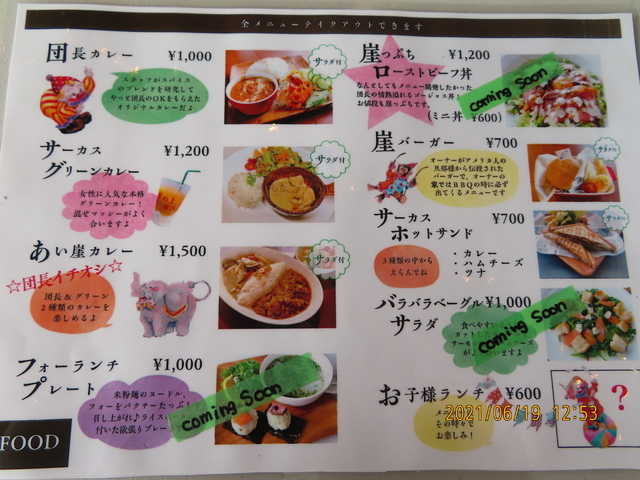 全メニューテイクアウトできます
団長カレー ¥1,000
スタッフがスパイス
のブレンドを研究して
やっと団長のOKをもらえた
オリジナルカレーだよ
サラダ付
サーカス ¥1,200
グリーンカレー
女性に人気な本格
グリーンカレー!
混ぜマッシーがよく
合いますよ
サラダ付
あい崖カレー ¥1,500
☆団長イチオシ☆
団長&グリーン
2種類のカレーを
楽しめるよ
サラダ付
フォーランチ ¥1,000
プレート
米粉麺のヌードル、
フォーをパクチーたっぷり
召し上がれ♪ライス
付いた欲張りプレー
coming Soon
FOOD
崖っぷち ¥1,200
ローストビーフ丼
なんとしてもメニュー開発したかった
団長の情熱溢れるゴージャス丼!
お値段も崖っぷちです。
(ミニ丼 ¥600)
coming Soon
崖バーガー ¥700
オーナーがアメリカ人の
旦那様から伝授された
バーガーで、オーナーの
家ではBBQの時に必ず
出てくるメニューです
サーカス ¥700
ホットサンド
3種類の中から
えらんでね
・カレー
・ハムチーズ
・ツナ
バラバラベーグル ¥1,000
サラダ
食べやすい
カットした
サーモン
coming Soon
お子様ランチ ¥600
その時々で
お楽しみ!
?
2021/06/19 12:53